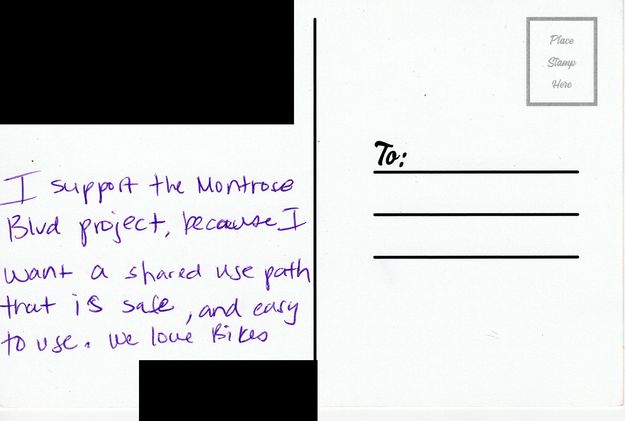 I support the Montrose
Blvd project, because I
want a shared use path
that is safe, and easy
to use. We love Bikes
Place
Stamp
Here
To: